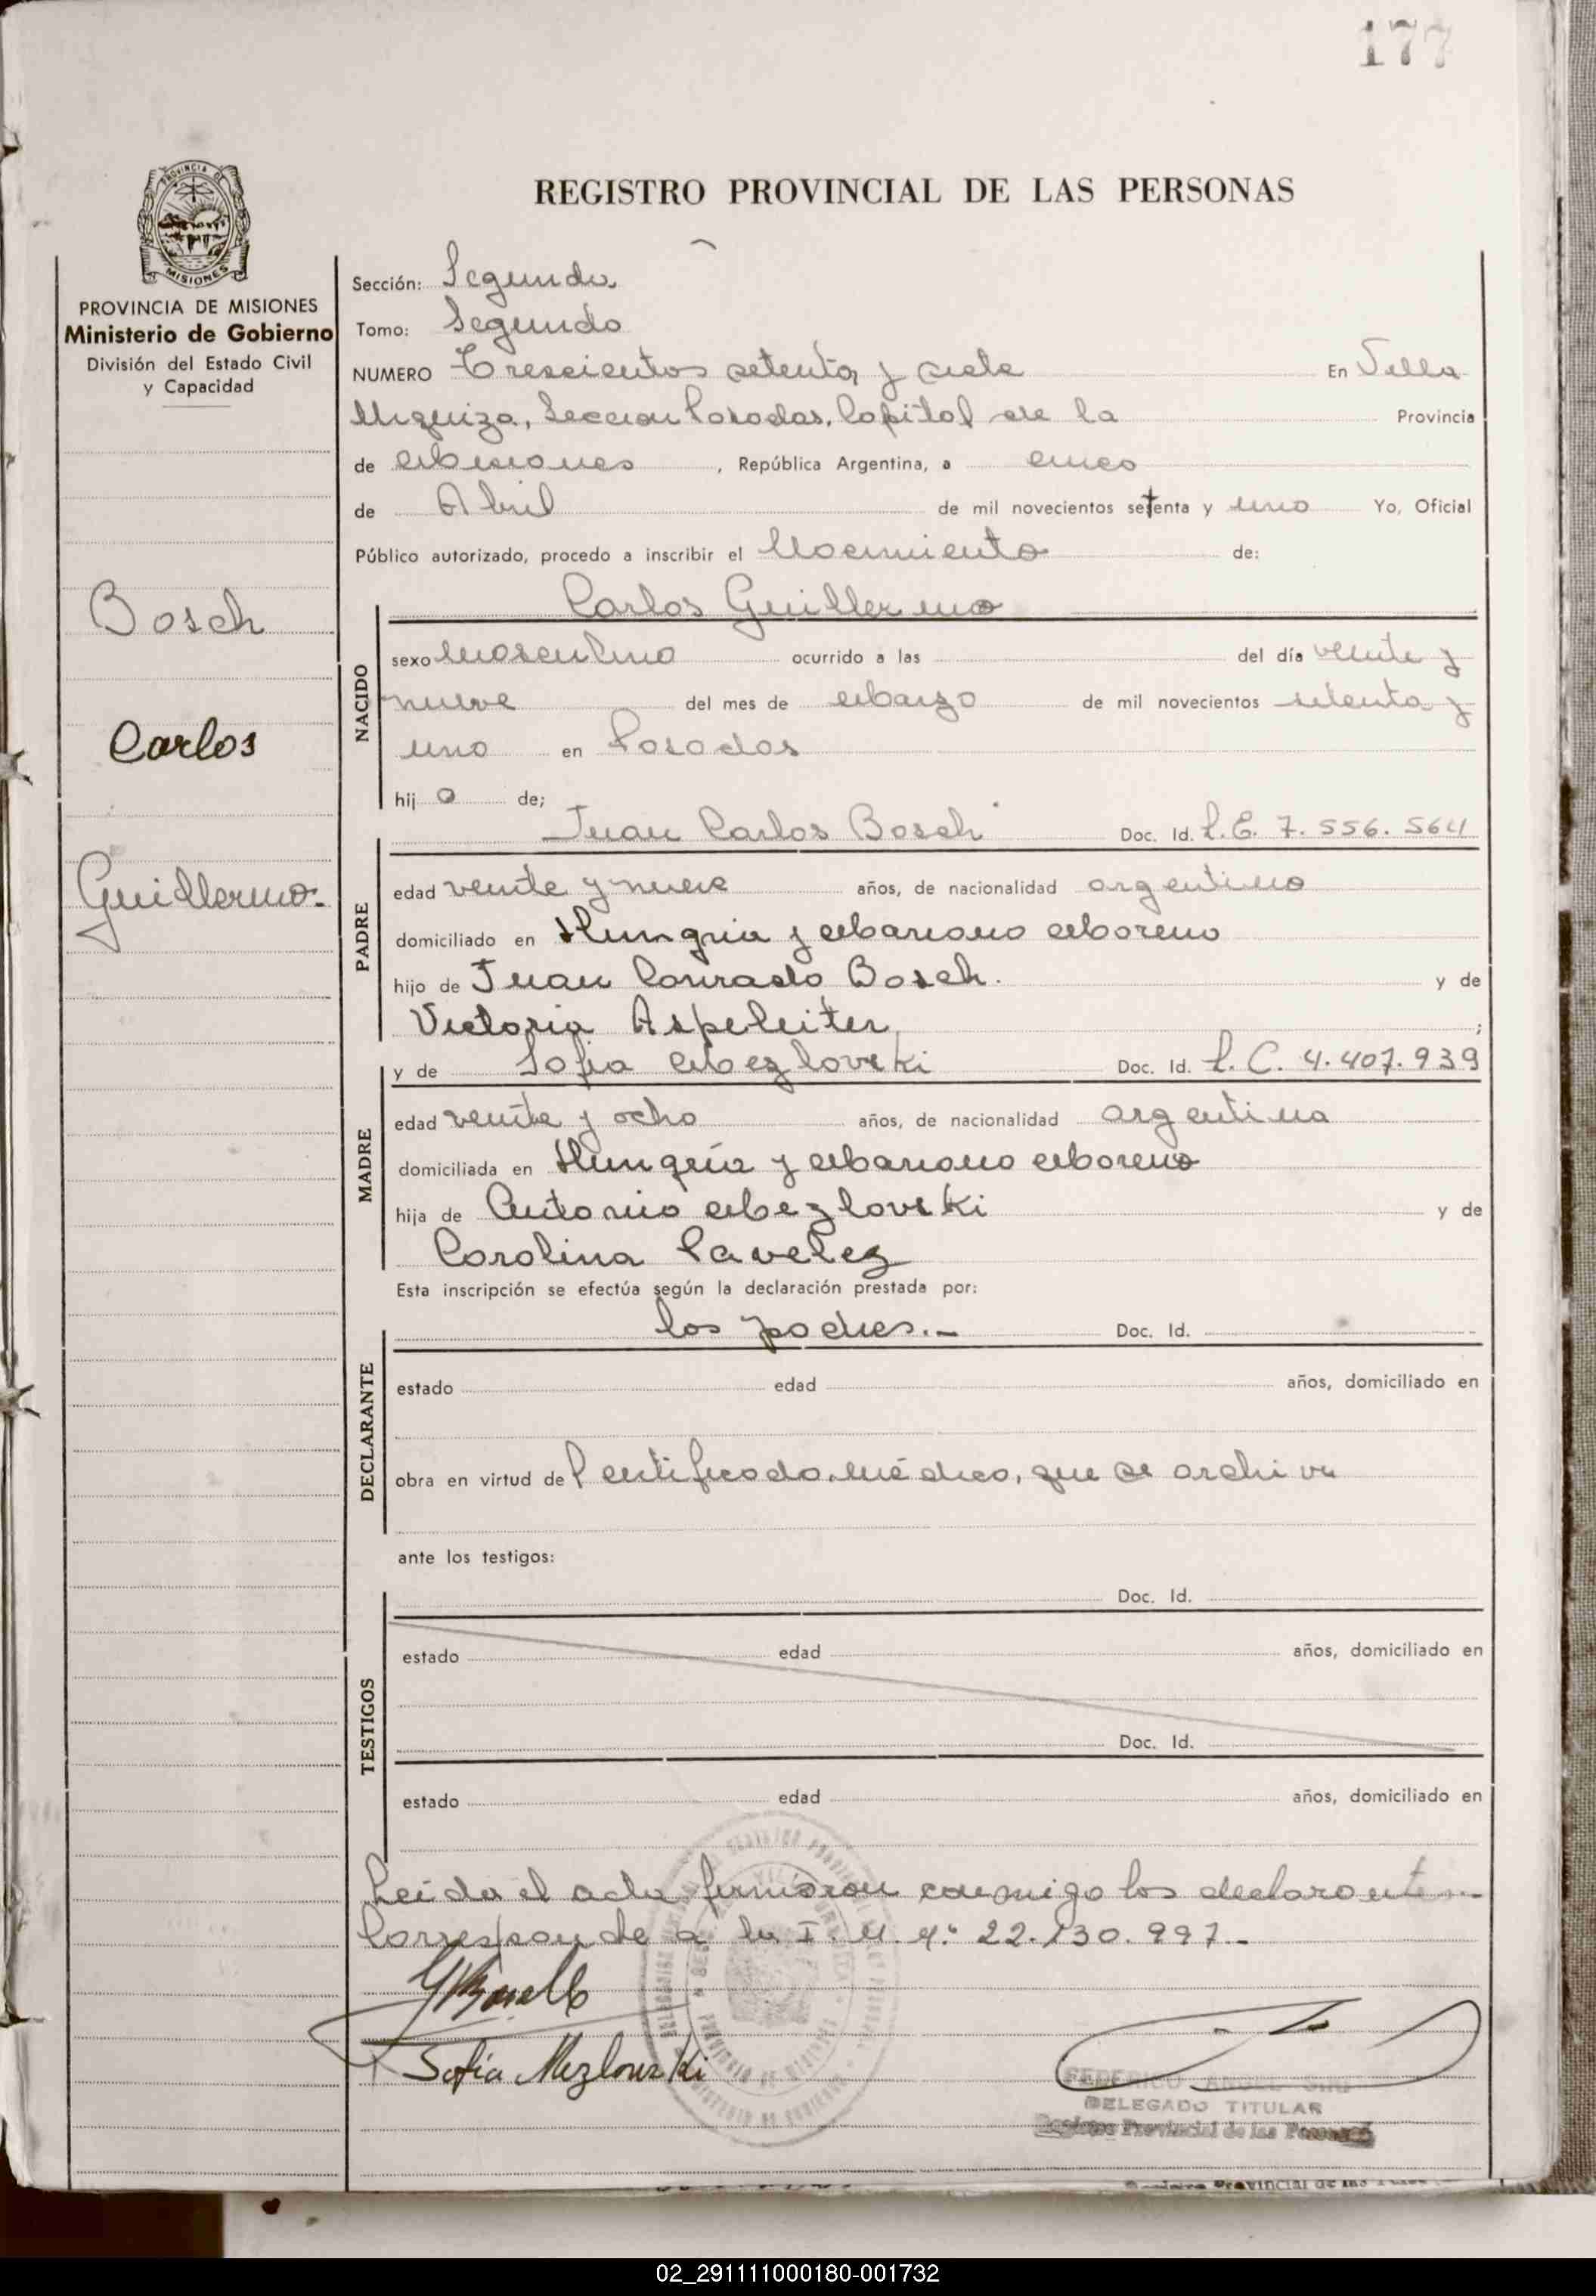 177
PROVINCIA DE
MISIONES
PROVINCIA DE MISIONES
Ministerio de Gobierno
División del Estado Civil
y Capacidad
Bosch
Carlos
Guillermo.
REGISTRO PROVINCIAL DE LAS PERSONAS
Sección: Segunda
Tomo: Segundo
NUMERO Trescientos setenta y siete En Villa
Urquiza, Seccion Posadas, Capital de la Provincia
de Misiones, República Argentina, a cinco
de Abril de mil novecientos setenta y uno Yo, Oficial
Público autorizado, procedo a inscribir el Nacimiento de:
Carlos Guillermo
NACIDO
sexo masculino ocurrido a las del día veinte y
nueve del mes de Marzo de mil novecientos setenta y
uno en Posadas
hij o de;
Juan Carlos Bosch Doc. Id. L.E. 7.556.564
PADRE
edad veinte y nueve años, de nacionalidad argentino
domiciliado en Hungria y Mariano Moreno
hijo de Juan Conrado Bosch. y de
Victoria Aspeleiter;
y de Sofia Mezlovski Doc. Id. L.C. 4.407.939
MADRE
edad veinte y ocho años, de nacionalidad argentina
domiciliada en Hungría y Mariano Moreno
hija de Antonio Mezlovski y de
Carolina Pavelez
Esta inscripción se efectúa según la declaración prestada por:
los padres.- Doc. Id.
DECLARANTE
estado edad años, domiciliado en
obra en virtud de Certificado médico, que se archiva
ante los testigos:
Doc. Id.
TESTIGOS
estado edad años, domiciliado en
Doc. Id.
estado edad años, domiciliado en
Leida el acta, firmaron conmigo los declarantes
Corresponde a la I. M. N.º 22.130.997.-
Sofía Mezlowski
FEDERICO ANGEL
DELEGADO TITULAR
Registro Provincial de las Personas
Registro Provincial de las
02_291111000180-001732